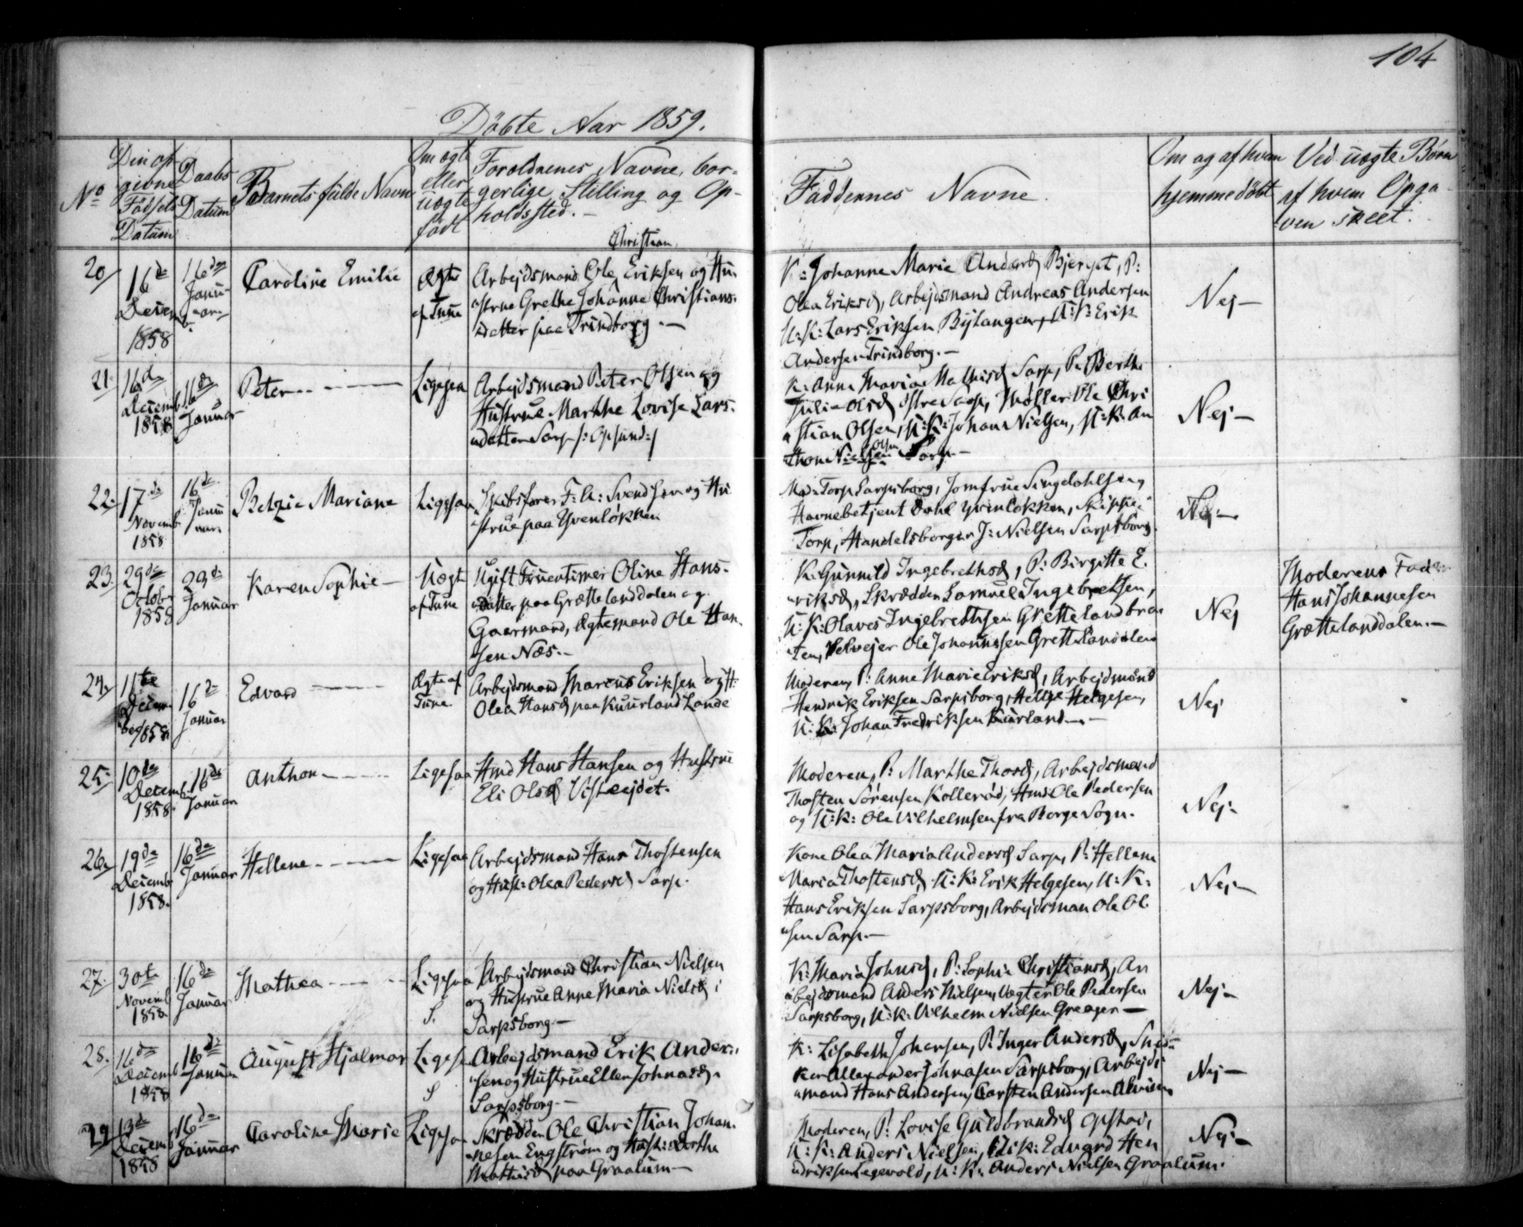 104
Döbte Aar 1859.
No
Den opgivne Födsels Datum
Daabs Datum
Barnets fulde Navn
Om ægte eller uægte født
Forældrenes Navne, borgerlige Stilling og Opholdssted.
Faddernes Navne.
Om og af hvem hjemmedöbt
Ved uægte Børn af hvem Opgaven skeet.
20/
16de Decem 1858
16de Januar
Caroline Emilie
Ægte af Tune
Christian
Arbejdsmand Ole Eriksen og Hu-
strue Grethe Johanne Christians-
datter paa Trindborg.—
K: Johanne Marie Andersd Bjerget, P:
Olea Eriksd, Arbejdsmand Andreas Andersen
U: K: Lars Eriksen Bylangen, U: K: Erik
Andersen Trindborg.—
Nej—
21
16de Decemb 1858
16de Januar
Peter
Ligesaa
Arbejdsmand Peter Olsen og
Hustrue Marthe Lovise Lars-
datter Sarp /: Opsund :/
K: Anne Maria Sarp, P: Berthe
Julie Olsd Østre Sarp, Møller Ole Chri
stian Olsen, U: K: Johan Nielsen, U: K: An
thon Nielsen Sarp.—
Nej—
22.
17de Novemb 1858
16de Januar
Betzie Mariane
Ligesaa
Skibsfører F: A: Svendsen og Hu
strue paa Yvenløkken
Mad: Torp Sarpsborg, Jomfrue Dahl
Havnebetjent Dahl Yvenløkken, Skipper
Torp, Handelsborger J: Nielsen Sarpsborg.
Nej—
23.
29de October 1858
23de Januar
Karen Sophie—
Uægte af Tune
Ugift Fruentimer Oline Hans-
datter paa Grætteland dalen og
Gaarmand, Ægtemand Ole Han-
sen Næs.—
K: Gunnild Ingebrethsd, P: Birgitte E-
riksd, Skrædder Samuel Ingebretsen,
U: K: Olaves Ingebrethsen Grættelandbra
ten, Selvejer Ole Johannesen Grættelanddalen
Nej
Moderens Fader
Hans Johannesen
Grættelanddalen.—
24.
11te Decem ber 1858
16de Januar
Edvard
Ægte af Tune
Arbejdsmand Marcus Eriksen og H:
Olea Hansd paa Kuurland Lande
Moderen, P: Anne Marie Eriksd, Arbejdsmænd
Hendrik Eriksen Sarpsborg, Helge Helgesen,
U: K: Johan Fredriksen Kuurland.—
Nej
25.
10de Decemb 1858.
16de Januar
Anthon
Ligesaa
Hmd Hans Hansen og Hustrue
Eli Olsd Visterejdet.
Moderen, P: Marthe Thorsd, Arbejdsmand
Thosten Sørensen Kollerød, Hmd Ole Pedersen
og U: K: Ole Vilhelmsen fra Borge Sogn.
Nej.
26.
19de Decemb 1858.
16de Januar
Hellene
Ligesaa
Arbejdsmand Hans Thostensen
og Hust: Olea Pedersd Sarp.
Kone Olea Maria Andersd Sarp, P: Hellene
Maria Thostensd, U: K: Erik Helgesen, U: K:
Hans Eriksen Sarpsborg, Arbejdsman Ole Ol
sen Sarp.—
Nej—
27.
30te Novemb 1858
16de Januar
Mathea
Ligesaa
S.
Arbejdsmand Christian Nielsen
og Hustrue Anne Maria Nielsd i
Sarpsborg.—
K: Maria Johnsd, P: Sophie Christiansd, Ar
bejdsmand Anders Nielsen, Vægter Ole Pedersen
Sarpsborg, U: K: Vilhelm Nielsen Greager—
Nej—
28.
16de Decemb 1858
16de Januar
August Hjalmar
Ligesa
S
Arbejdsmand Erik Ander-
sen og Hustrue Ellen Johnasd.
Sarpsborg.—
K: Lisabeth Johansen, P: Inger Andersd, Sned
ker Allexander Johnasen Sarpsborg, Arbejds
mand Hans Andersen, Carsten Andersen
Nej—
29
13de Decemb 1858
16de Januar
Caroline Marie
Ligesaa
Skrædder Ole Christian Johan-
nesen Engstrøm og Hust: Dorthe
Mathisd paa Graalum—
Moderen, P: Lovise Guldbrandsd Opstad,
U: K: Anders Nielsen, U: K: Edvard Hen
driksen, U: K: Anders Nielsen Graalum.
Nej—